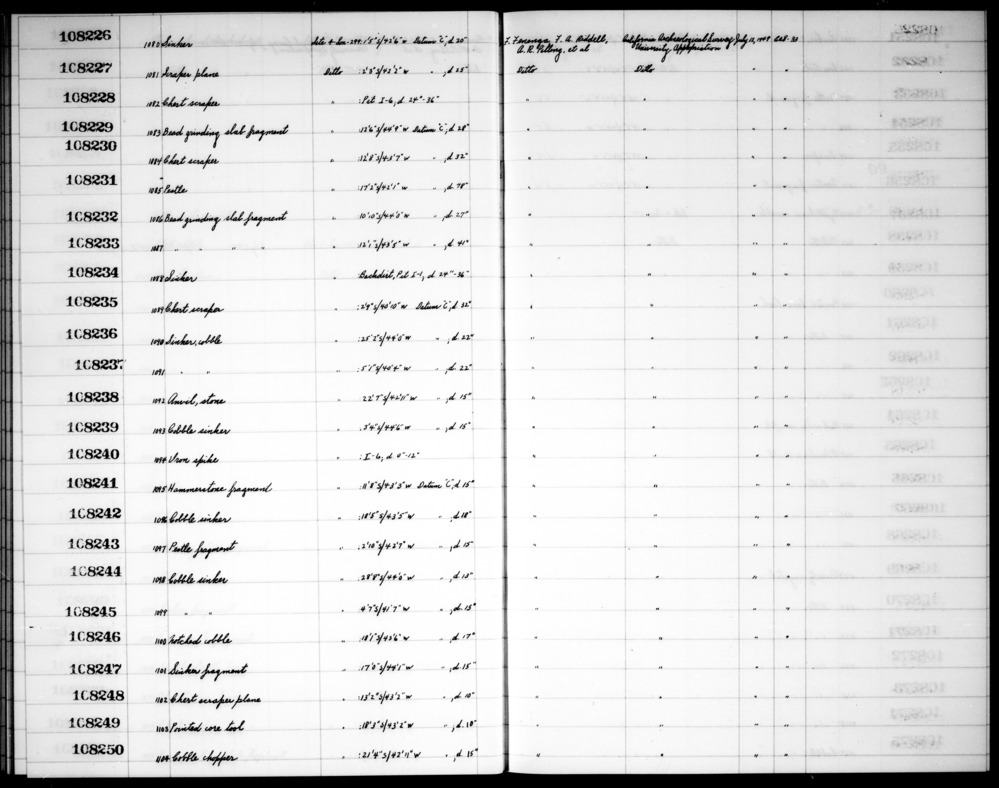 108226 1080 Sinker Site 4-Son-299: 1'5"S/42'6"W Datum "C", d 20" F. Fenenga, F. A. Riddell, California Archaeological Survey July 12, 1949 Cat. 30
A. R. Pilling, et al University Appropriation
108227 1081 Scraper plane Ditto :2'5"S/42'2"W " , d 25" Ditto Ditto " "
108228 1082 Chert scraper " :Pit I-6, d 24"-36" " " " "
108229 1083 Bead grinding slab fragment " :12'6"S/44'9"W Datum "C", d 28" " " " "
108230 1084 Chert scraper " :12'8"S/43'7"W " , d 32" " " " "
108231 1085 Pestle " :17'2"S/42'1"W " , d 78" " " " "
108232 1086 Bead grinding slab fragment " :10'10"S/44'5"W " , d 27" " " " "
108233 1087 " " " " :12'1"S/43'5"W " , d 41" " " " "
108234 1088 Sinker " Backdirt, Pit I-1, d 24"-36" " " " "
108235 1089 Chert scraper " :2'9"S/40'10"W Datum "C", d 32" " " " "
108236 1090 Sinker, cobble " :25'2"S/44'0"W " , d 22" " " " "
108237 1091 " " " :5'1"S/40'4"W " , d. 22" " " " "
108238 1092 Anvil, stone " :22'7"S/42'11"W " , d 15" " " " "
108239 1093 Cobble sinker " :3'4"S/44'6"W " , d 15" " " " "
108240 1094 Iron spike " : I-6, d 0"-12" " " " "
108241 1095 Hammerstone fragment " :11'8"S/43'5"W Datum "C", d 15" " " " "
108242 1096 Cobble sinker " :18'5"S/43'5"W " , d 18" " " " "
108243 1097 Pestle fragment " :2'10"S/42'7"W " , d 15" " " " "
108244 1098 Cobble sinker " :28'8"S/44'0"W " , d 13" " " " "
108245 1099 " " " 4'7"S/41'7"W " , d. 15" " " " "
108246 1100 Notched cobble " :18'1"S/43'6"W " , d 17" " " " "
108247 1101 Sinker fragment " :17'0"S/44'1"W " , d 15" " " " "
108248 1102 Chert scraper plane " :13'2"S/43'2"W " , d 10" " " " "
108249 1103 Pointed core tool " :18'3"S/43'2"W " , d. 10" " " " "
108250 1104 Cobble chopper " :21'4"S/42'11"W " , d 15" " " " "